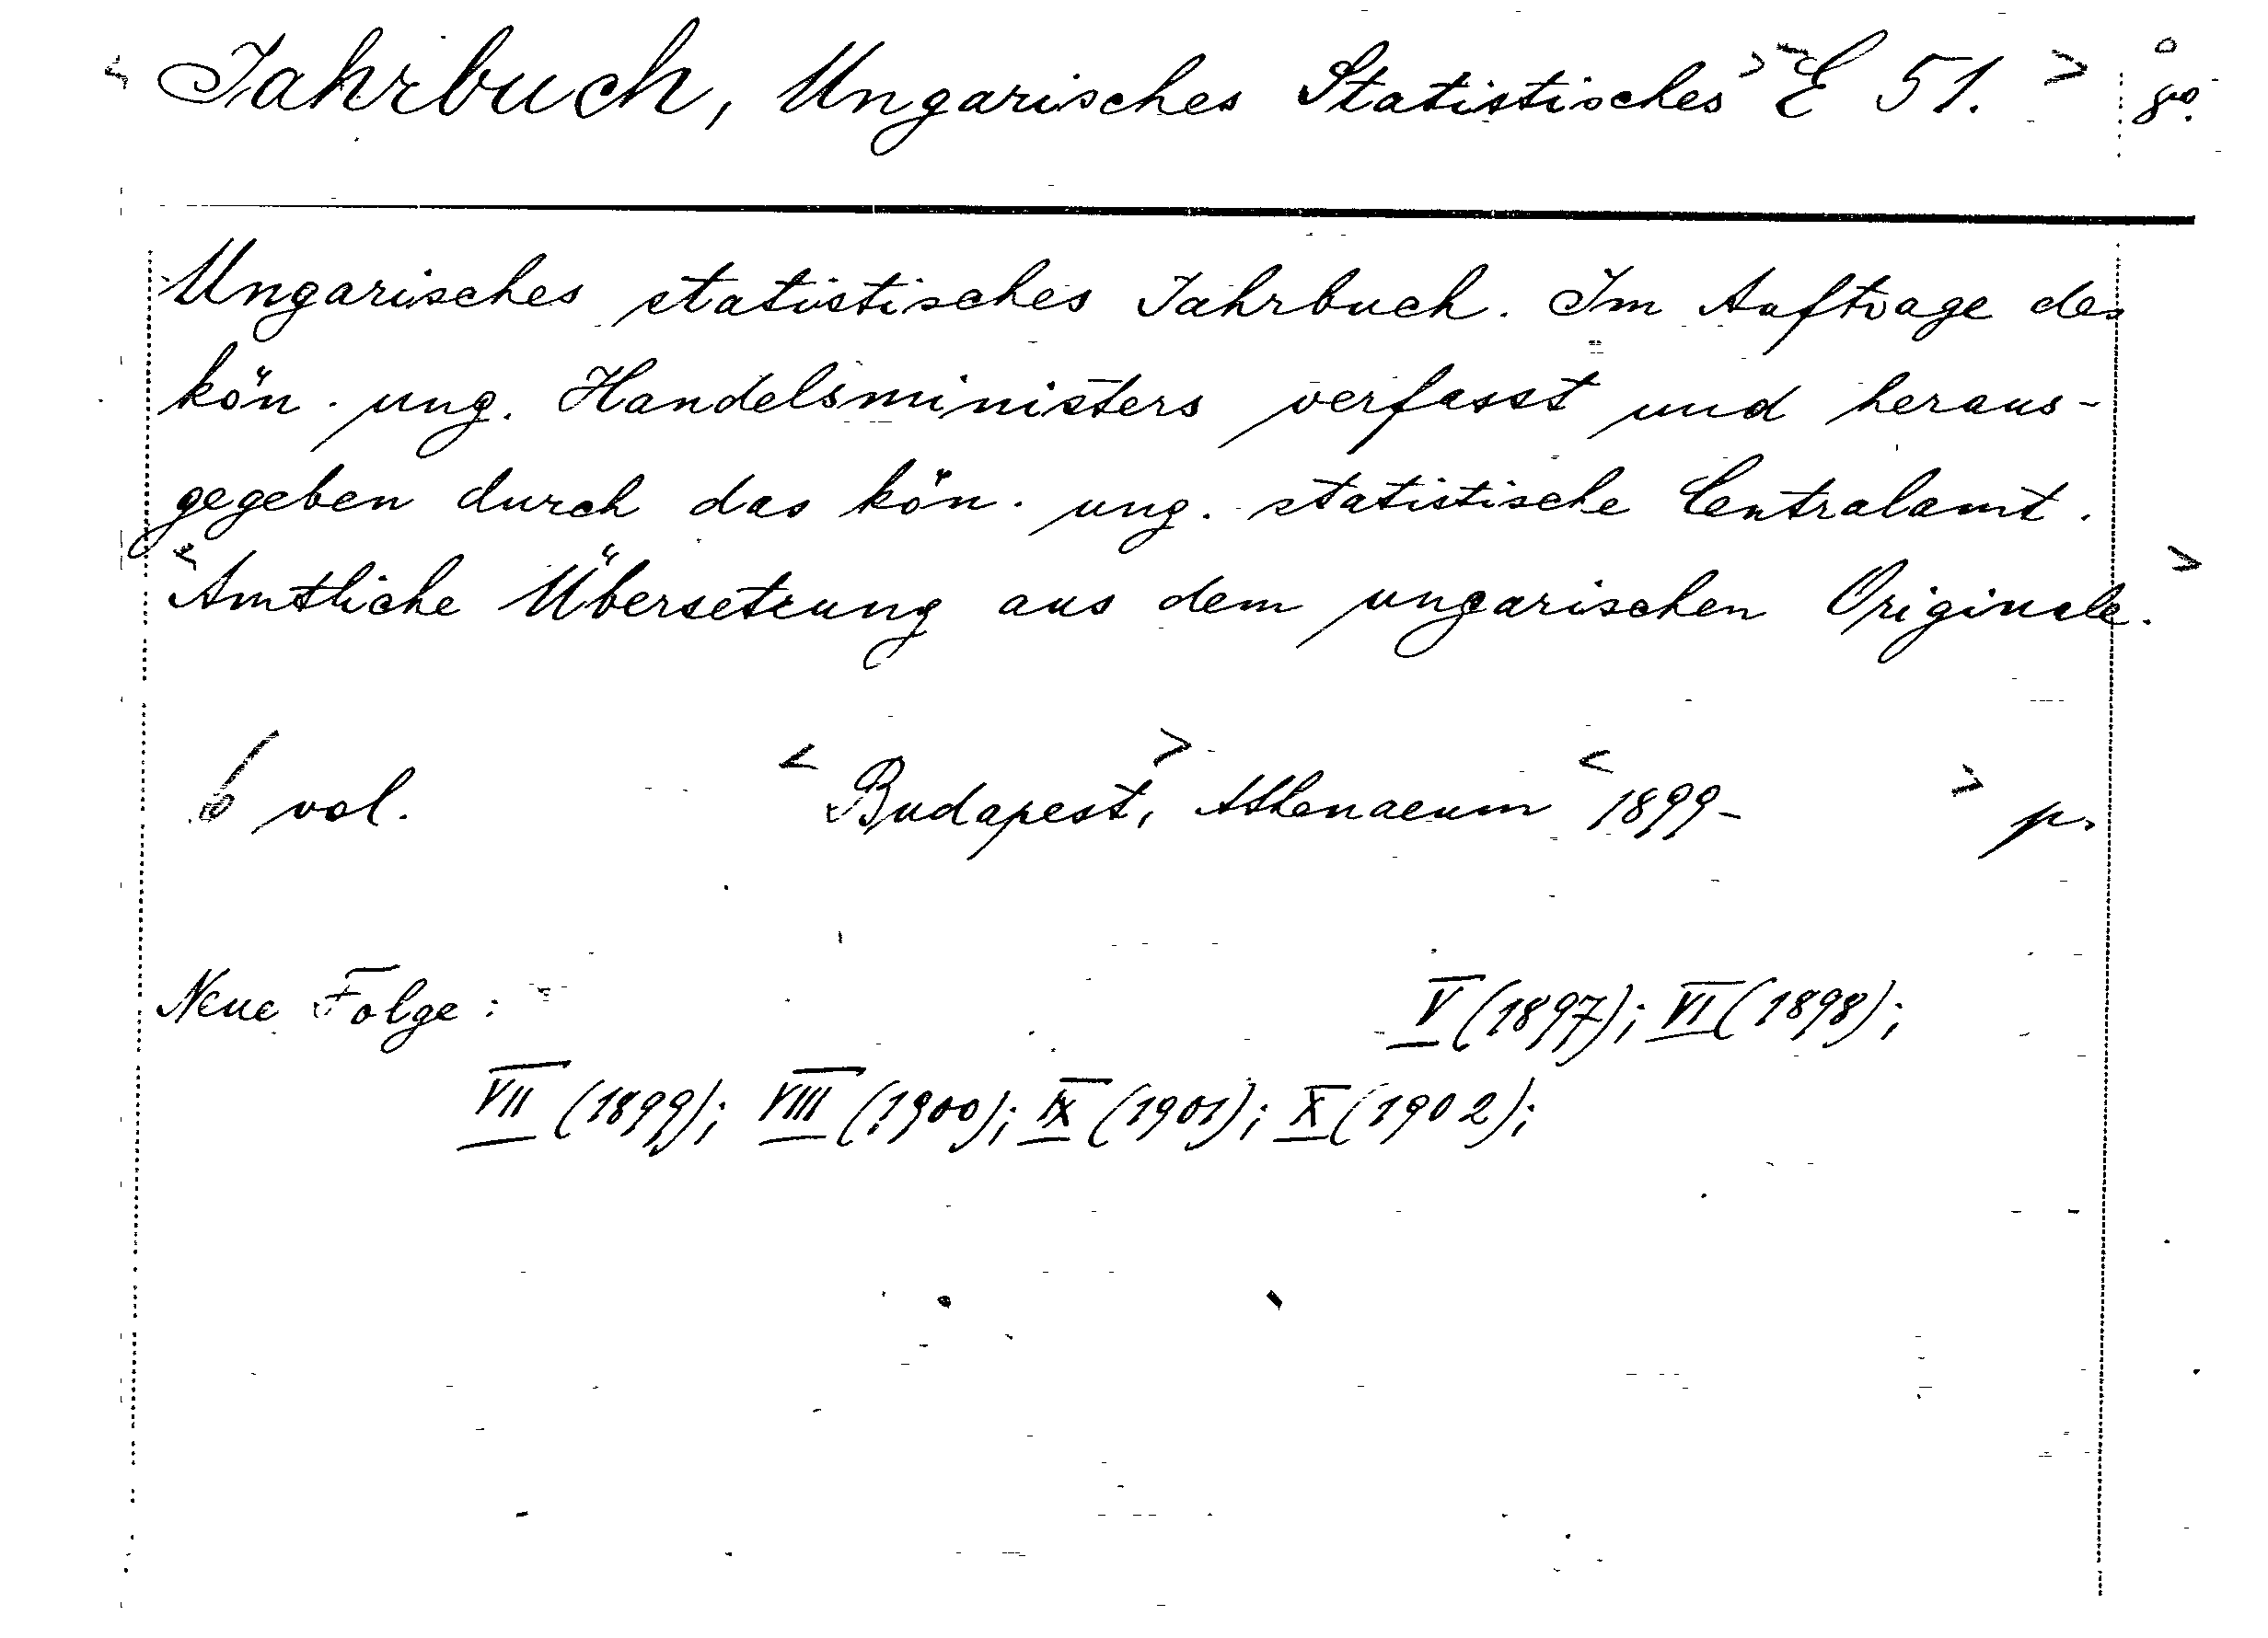 < Jahrbuch, Ungarisches Statistisches > < E 51. > 8º.
Ungarisches statistisches Jahrbuch. Im Auftrage des
kön. ung. Handelsministers verfasst und heraus-
gegeben durch das kön. ung. statistische Centralamt.
< Amtliche Übersetzung aus dem ungarischen Originale. >
6 vol. < Budapest, > Athenaeum < 1899- > p.
Neue Folge: V (1897); VI (1898);
VII (1899); VIII (1900); IX (1901); X (1902);